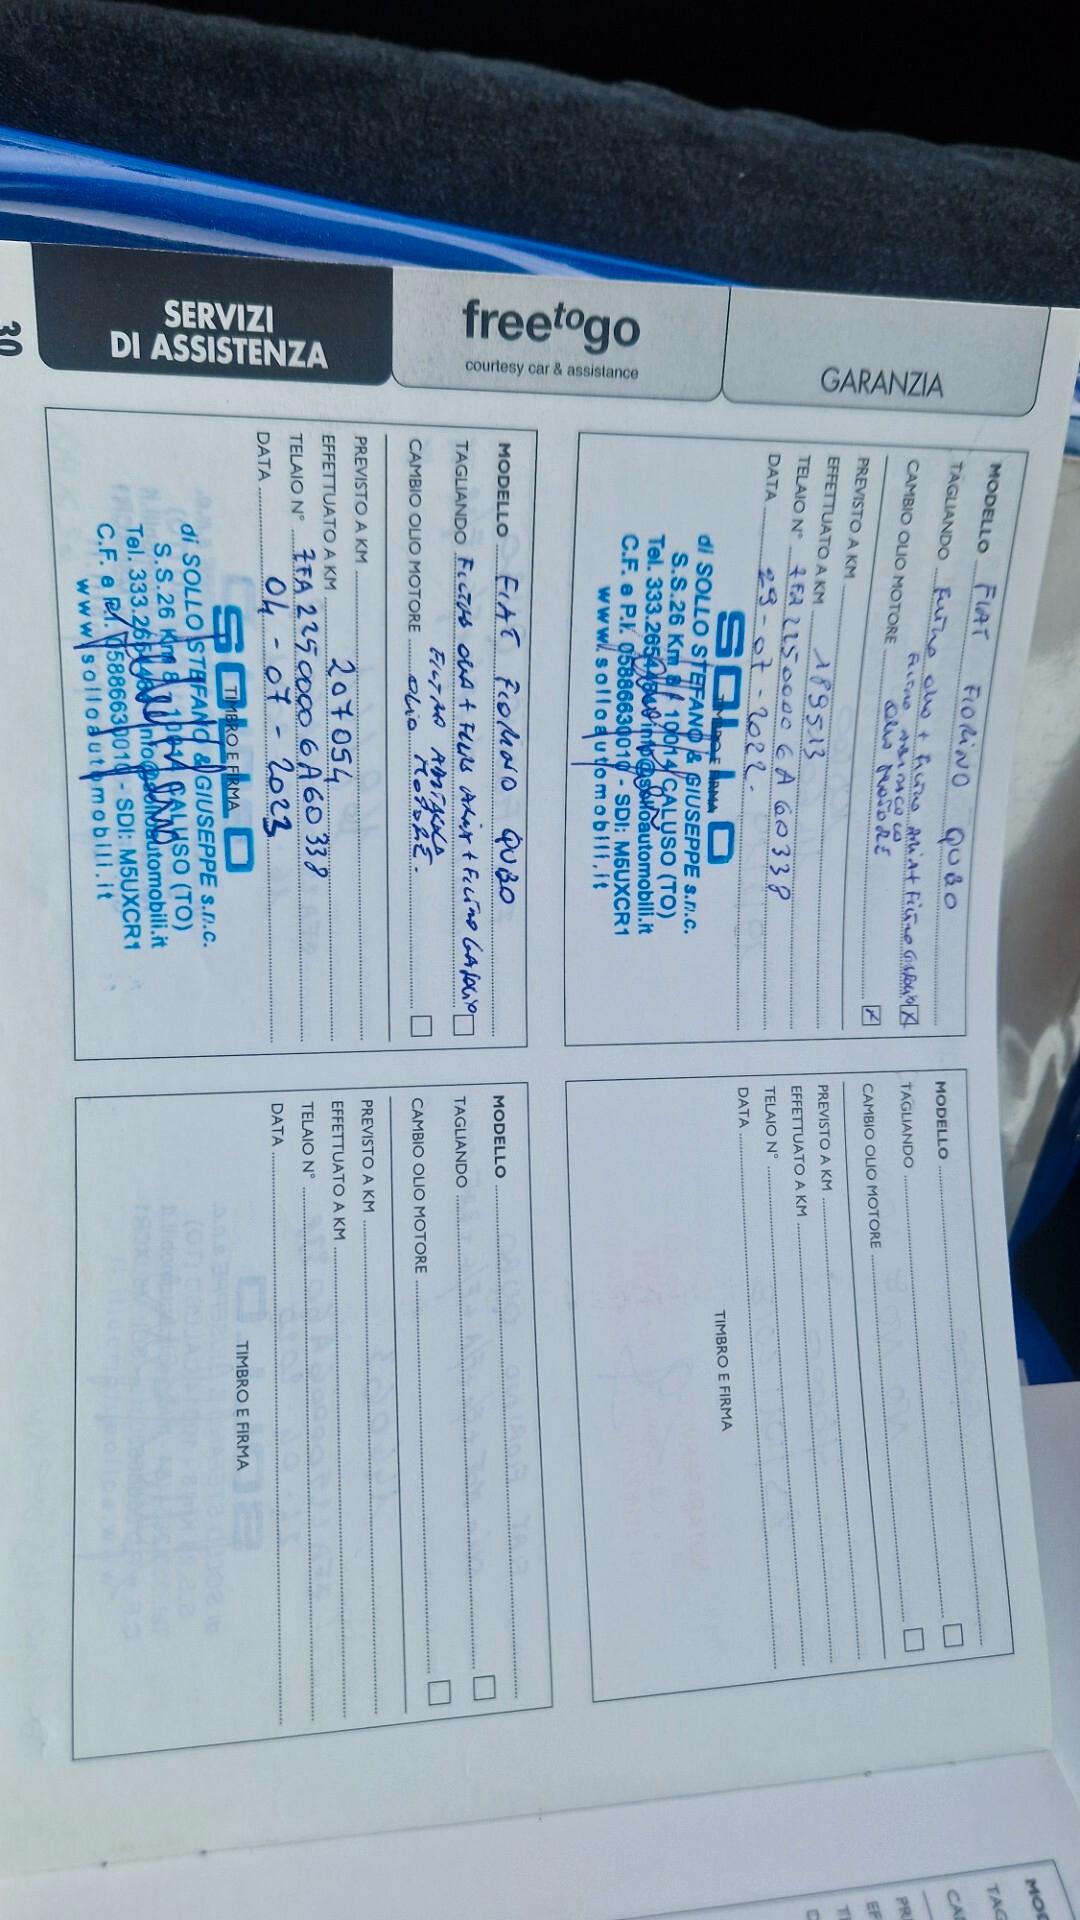 GARANZIA
freetogo
courtesy car & assistance
SERVIZI
DI ASSISTENZA
30
MODELLO FIAT FIORINO QUBO
TAGLIANDO Filtro olio + Filtro aria + Filtro Gasolio
Filtro
CAMBIO OLIO MOTORE OLIO MOTORE
PREVISTO A KM
EFFETTUATO A KM 189513
TELAIO N° ZFA22500006A60338
DATA 29-07-2022.
TIMBRO E FIRMA
SOLLO
di SOLLO STEFANO & GIUSEPPE s.n.c.
S.S.26 Km 8 / 10014 CALUSO (TO)
Tel. 333.265 info@solloautomobili.it
C.F. e P.I. 05886630010 - SDI: M5UXCR1
www.solloautomobili.it
MODELLO FIAT FIORINO QUBO
TAGLIANDO Filtro olio + Filtro Aria + Filtro GASOLIO
FILTRO ABITACOLO
CAMBIO OLIO MOTORE OLIO MOTORE.
PREVISTO A KM
EFFETTUATO A KM 207054
TELAIO N° ZFA22500006A60338
DATA 04-07-2023
TIMBRO E FIRMA
SOLLO
di SOLLO STEFANO & GIUSEPPE s.n.c.
S.S.26 Km 8 10014 CALUSO (TO)
Tel. 333.265 info@solloautomobili.it
C.F. e P.I. 05886630010 - SDI: M5UXCR1
www.solloautomobili.it
MODELLO
TAGLIANDO
CAMBIO OLIO MOTORE
PREVISTO A KM
EFFETTUATO A KM
TELAIO N°
DATA
TIMBRO E FIRMA
MODELLO
TAGLIANDO
CAMBIO OLIO MOTORE
PREVISTO A KM
EFFETTUATO A KM
TELAIO N°
DATA
TIMBRO E FIRMA